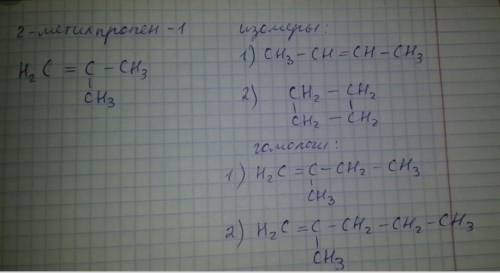 2-метилпропен-1
H₂C = C – CH₃
|
CH₃
изомеры:
1) CH₃ – CH = CH – CH₃
2) CH₂ – CH₂
| |
CH₂ – CH₂
гомологи:
1) H₂C = C – CH₂ – CH₃
|
CH₃
2) H₂C = C – CH₂ – CH₂ – CH₃
|
CH₃